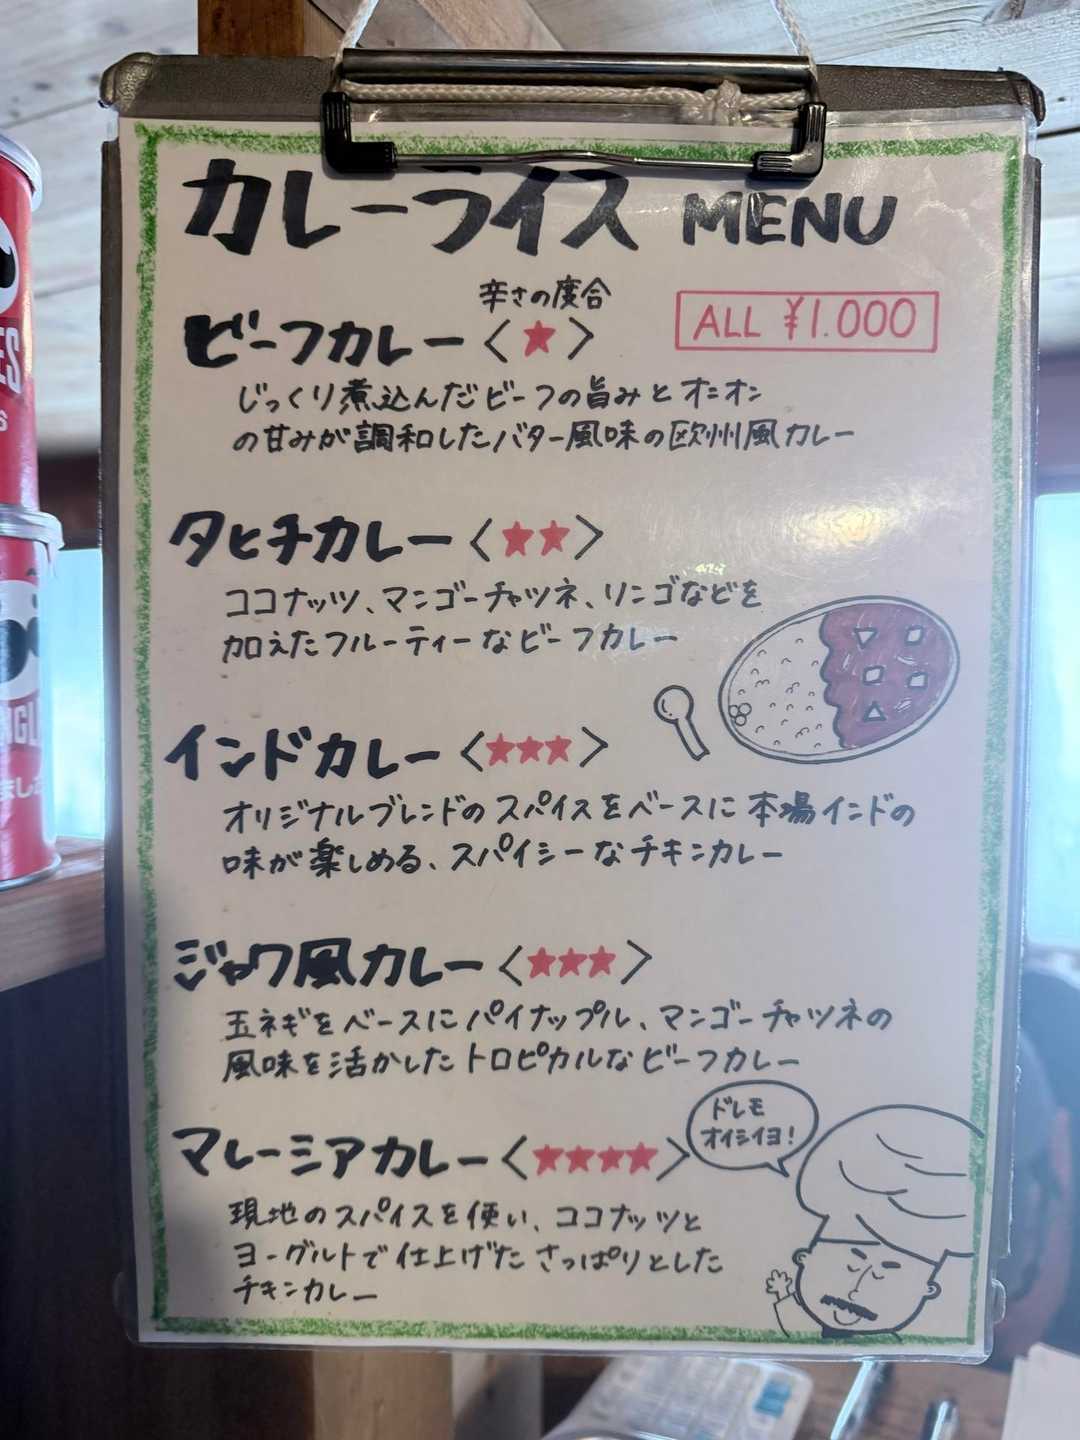 カレーライス MENU
辛さの度合
ビーフカレー〈★〉
ALL ¥1.000
じっくり煮込んだビーフの旨みとオニオン
の甘みが調和したバター風味の欧州風カレー
タヒチカレー〈★★〉
ココナッツ、マンゴーチャツネ、リンゴなどを
加えたフルーティーなビーフカレー
インドカレー〈★★★〉
オリジナルブレンドのスパイスをベースに本場インドの
味が楽しめる、スパイシーなチキンカレー
ジャワ風カレー〈★★★〉
玉ネギをベースにパイナップル、マンゴーチャツネの
風味を活かしたトロピカルなビーフカレー
マレーシアカレー〈★★★★〉
ドレモ
オイシイヨ!
現地のスパイスを使い、ココナッツと
ヨーグルトで仕上げたさっぱりとした
チキンカレー